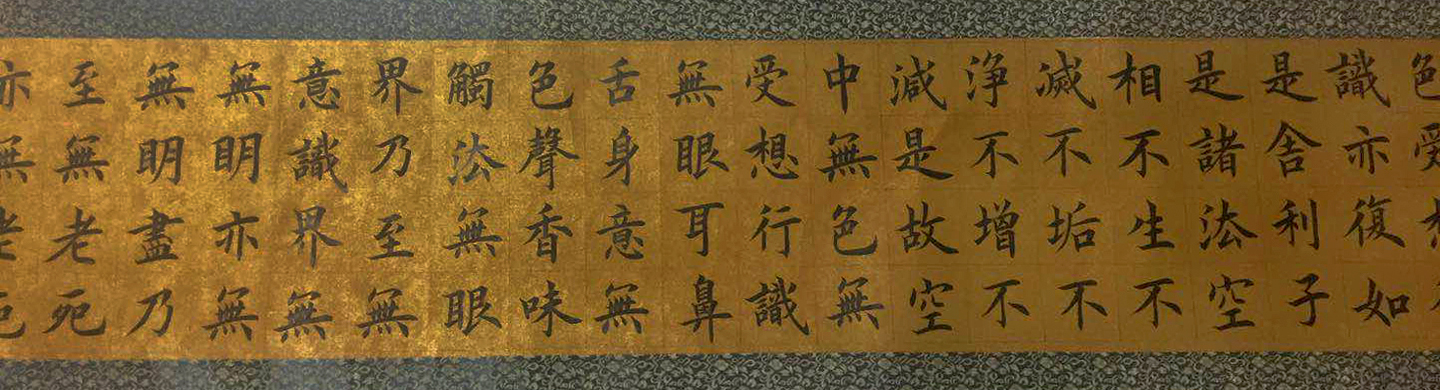 色受
識亦復如
是舍利子
是諸法空
相不生不
滅不垢不
浄不增不
減是故空
中無色無
受想行識
無眼耳鼻
舌身意無
色聲香味
觸法無眼
界乃至無
意識界無
無明亦無
無明盡乃
至無老死
亦無老死